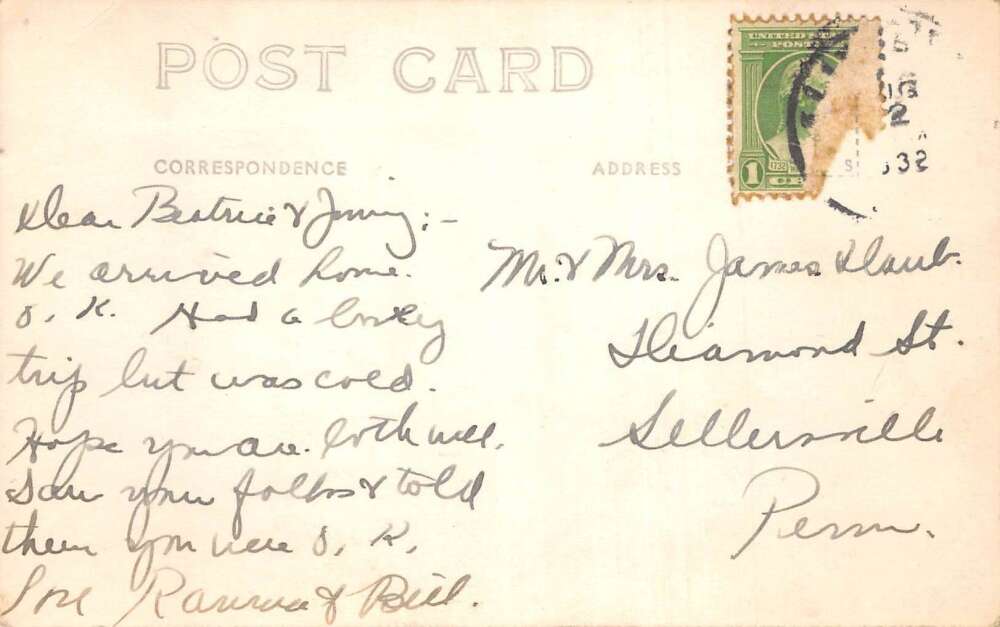 POST CARD
UNITED STA
POSTA
1
1732
CORRESPONDENCE
ADDRESS
2
Dear Beatrice & Jimmy:-
We arrived home.
O. K. Had a lovely
trip but was cold.
Hope you are both well.
Saw your folks & told
them you were O. K.
Love & Bill.
Mr. & Mrs. James Daub.
Diamond St.
Sellersville
Penn.